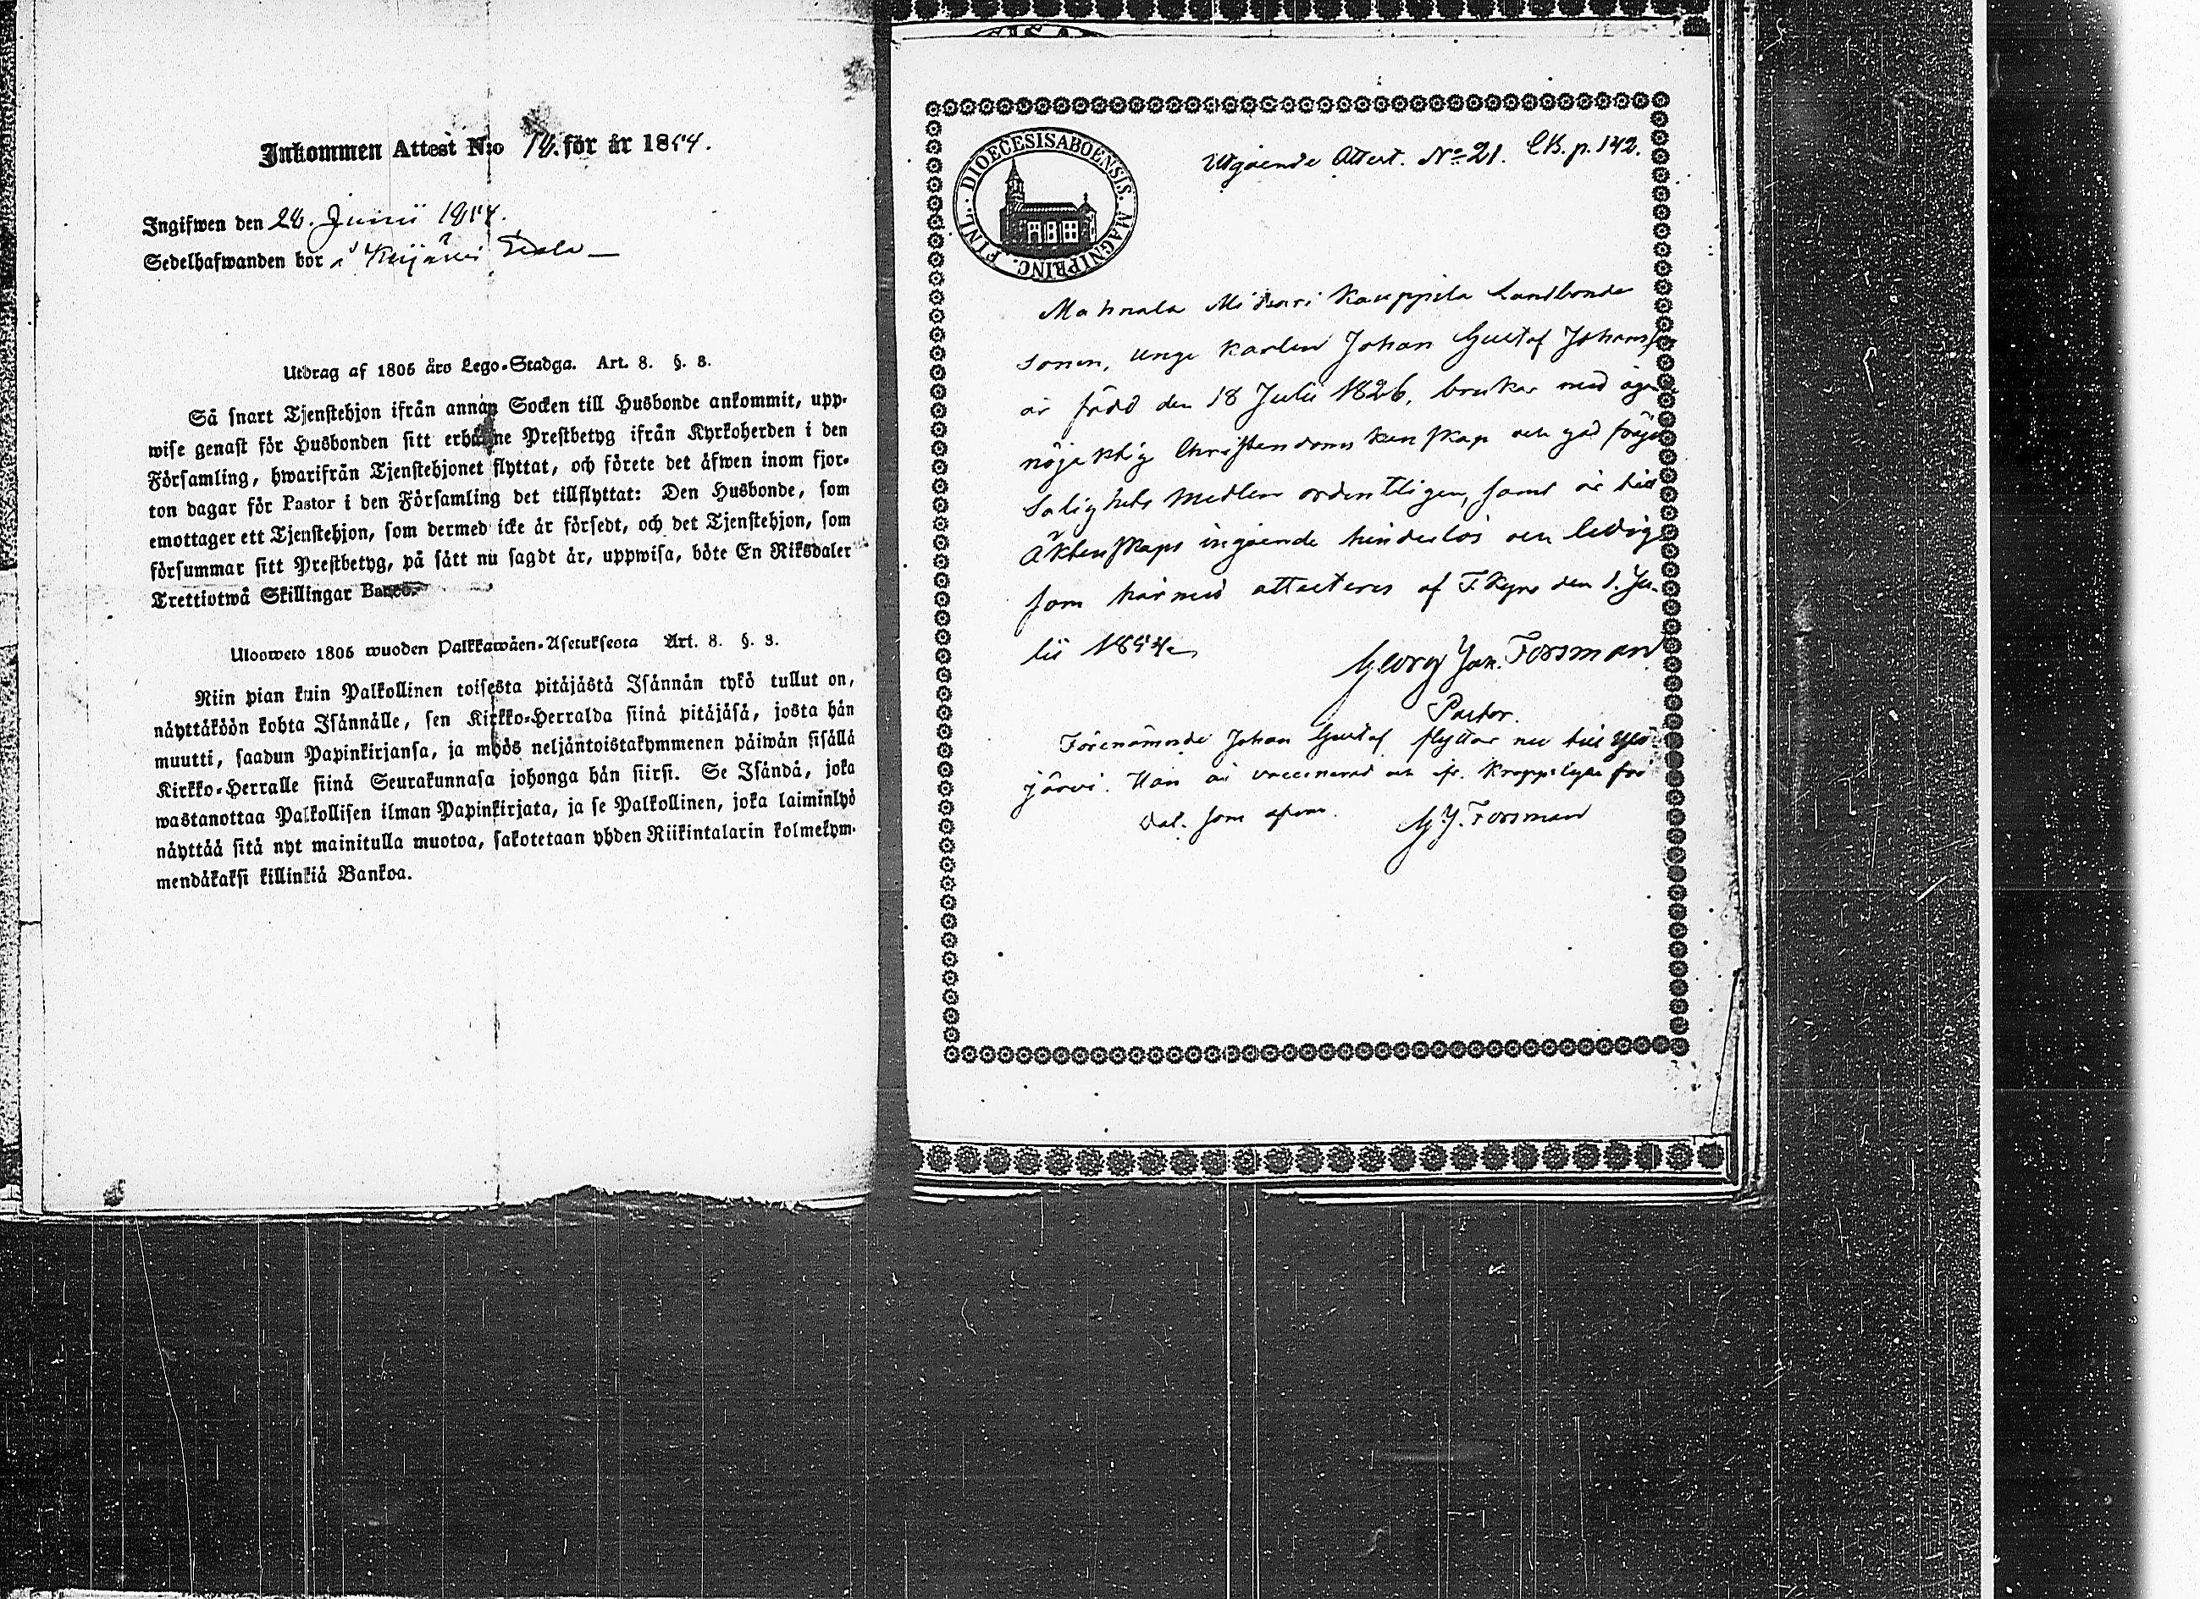 Inkommen Attest N:o 18. för år 1854.
Ingifwen den 28. Junii 1854.
Sedelhafwanden bor å
Utdrag af 1805 års Lego-Stadga. Art. 8. §. 8.
Så snart Tjenstehjon ifrån annan Socken till Husbonde ankommit, upp-
wise genast för Husbonden sitt erhållne Prestbetyg ifrån Kyrkoherden i den
Församling, hwarifrån Tjenstehjonet flyttat, och förete det äfwen inom fjor-
ton dagar för Pastor i den Församling det tillflyttat: Den Husbonde, som
emottager ett Tjenstehjon, som dermed icke är försedt, och det Tjenstehjon, som
försummar sitt Prestbetyg, på sätt nu sagdt är, uppwisa, böte En Riksdaler
Trettiotwå Skillingar Banco.
Ulosweto 1805 wuoden Palkkawäen-Asetuksesta Art. 8. §. 8.
Niin pian kuin Palkollinen toisesta pitäjästä Isännän tykö tullut on,
näyttäköön kohta Isännälle, sen Kirkko-Herralda siinä pitäjäsä, josta hän
muutti, saadun Papinkirjansa, ja myös neljäntoistakymmenen päiwän sisällä
Kirkko-Herralle siinä Seurakunnasa johonga hän siirsi. Se Isändä, joka
wastanottaa Palkollisen ilman Papinkirjata, ja se Palkollinen, joka laiminlyö
näyttää sitä nyt mainitulla muotoa, sakotetaan yhden Riikintalarin kolmekym-
mendäkaksi killinkiä Bankoa.
DIOECESIS ABOENSIS. MAGNI PRINC. FINL.
Utgående Attest. No 21. CB. p. 142.
Mahnala Mikkari Kauppila Landbonde
sonen, unge karlen Johan Gustaf Johansson
är född den 18 Julii 1826, brukar med äger
nöjaktig Christendoms kunskap och god fräjd
Salighets Medlen ordentligen, samt är till
Äktenskaps ingående hinderlös och ledig
som härmed attesteres af T. Kyro den 1. Ju-
lii 1854.
Georg Jak. Forsman
Pastor.
Förenämnde Johan Gustaf flyttar nu till Ylö-
järvi. Han är vaccinerad och fr. kroppslyte fri
Dat. som ofvan. G. J. Forsman